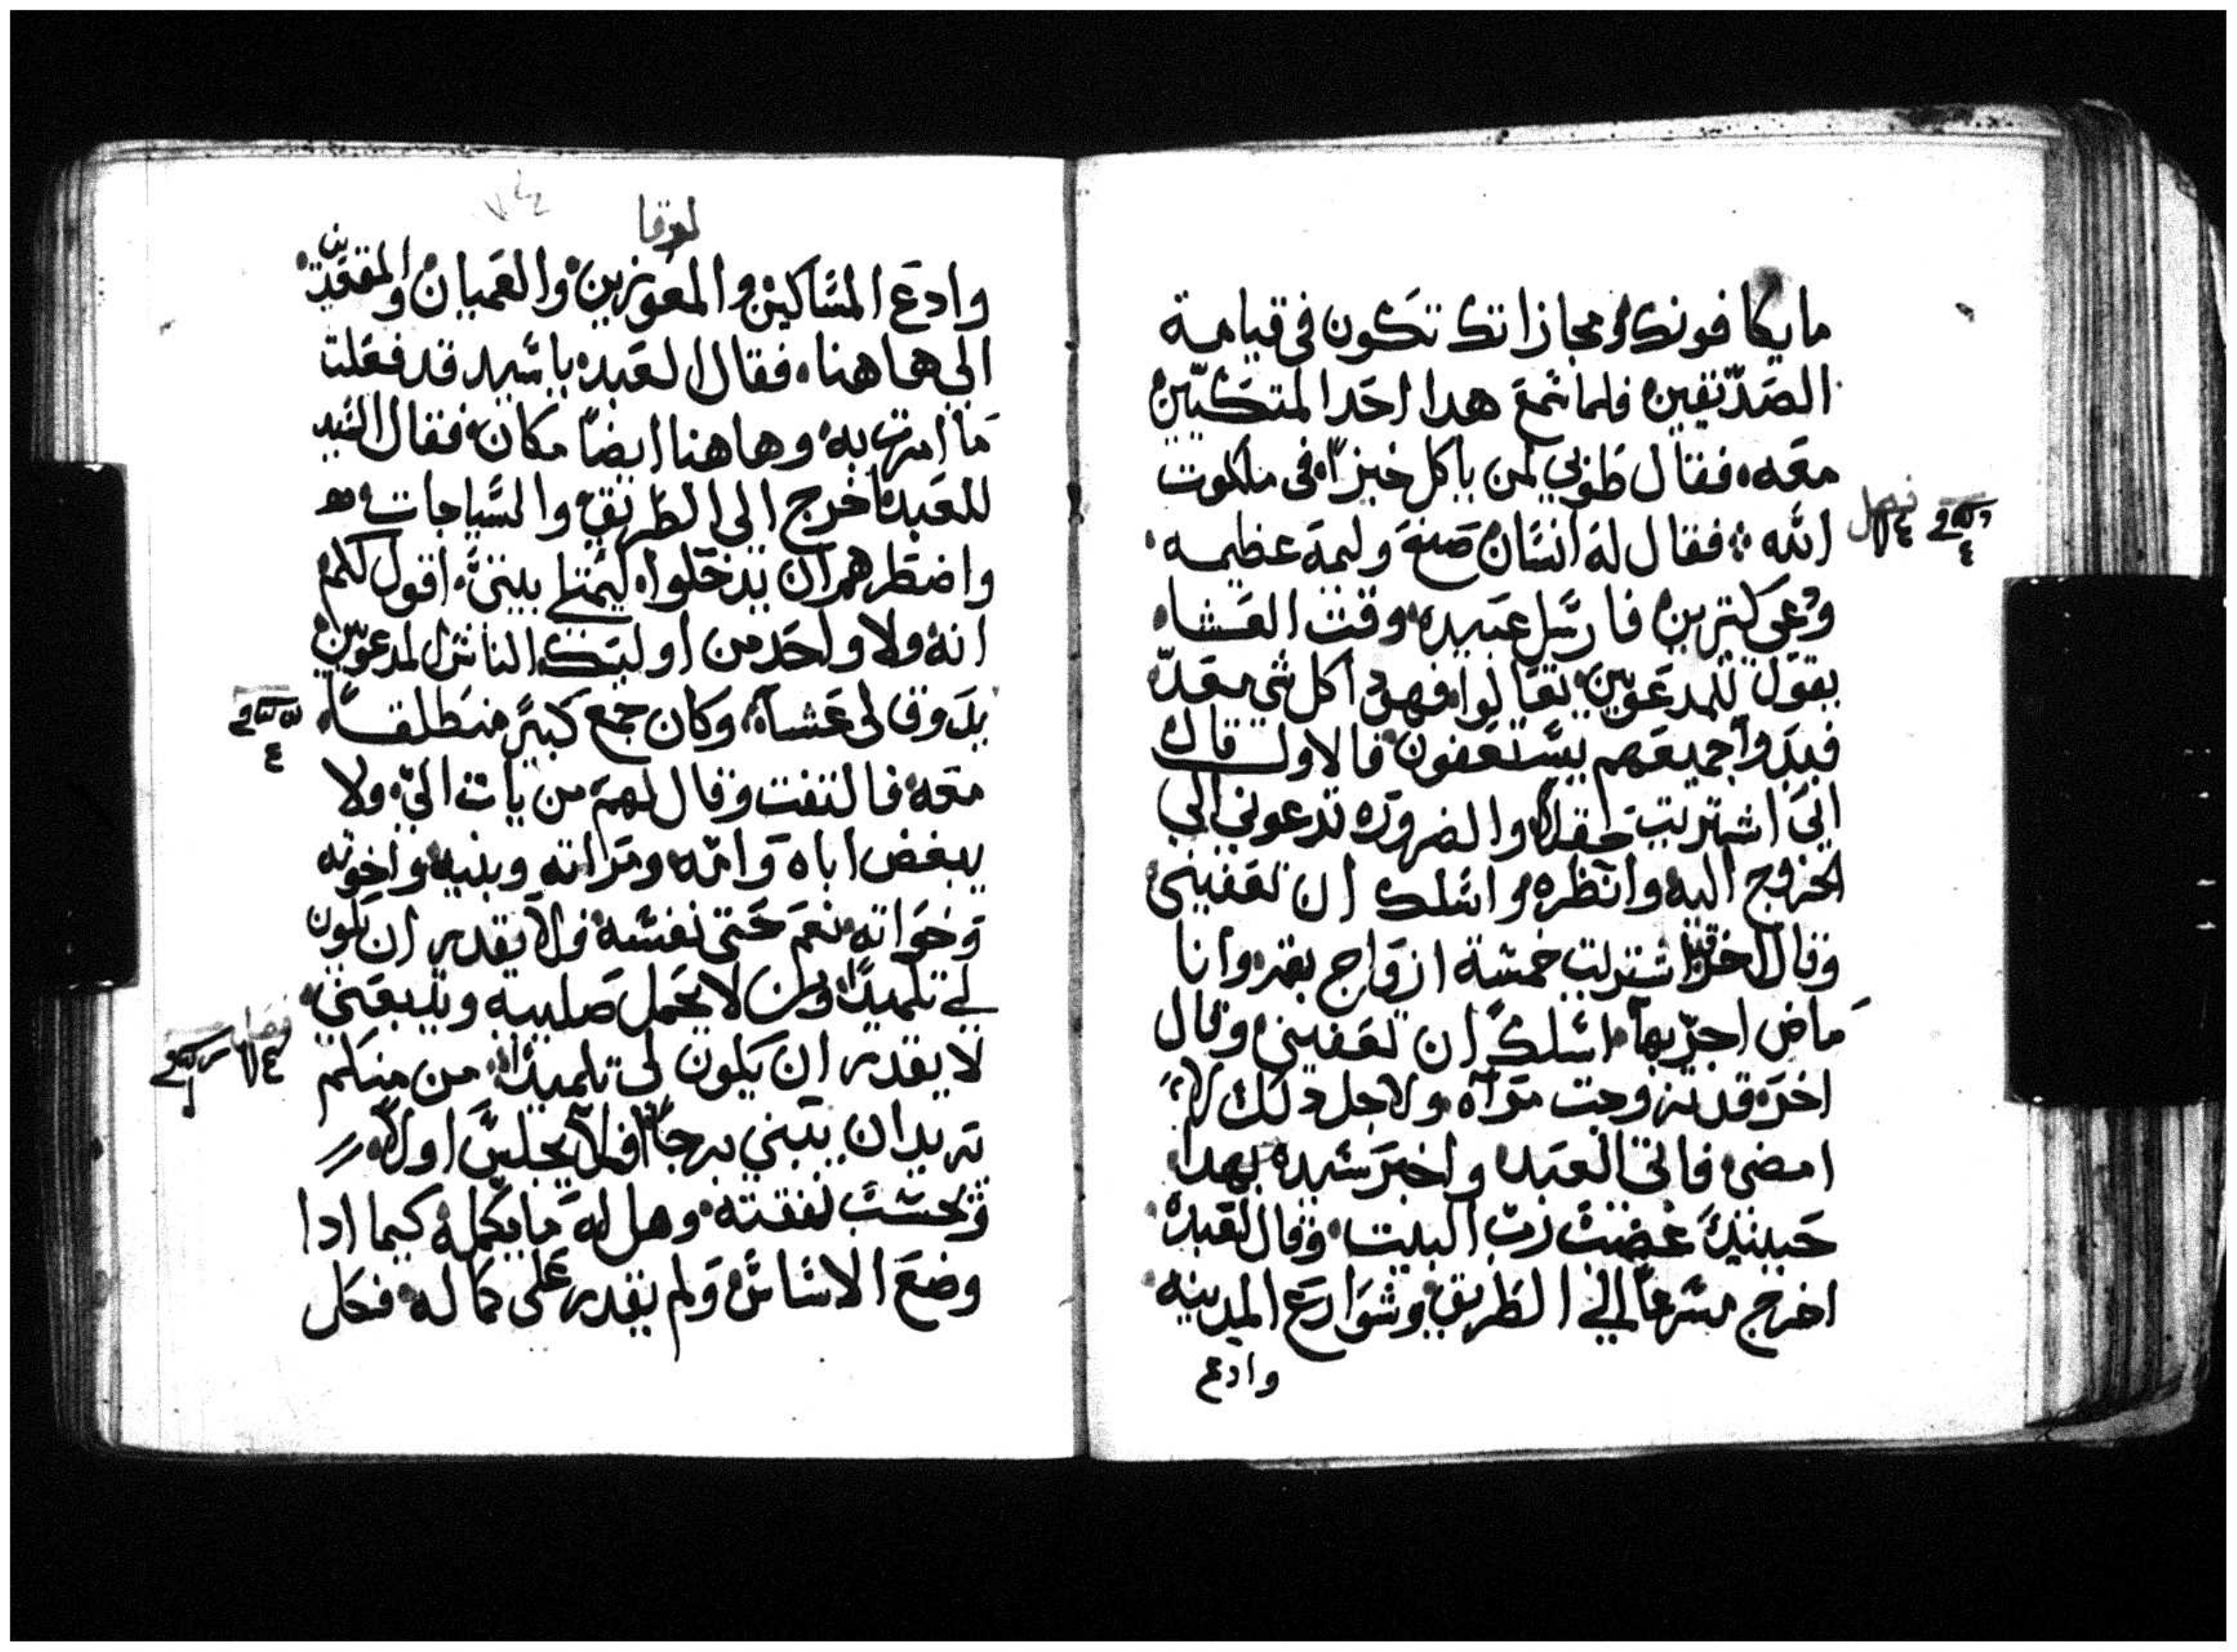 ما يكافونك ومجازاتك تكون في قيامة
الصديقين فلما سمع هدا احد المتكيين
معه، فقال طوبي لمن ياكل خبزا، في ملكوت
الله ∴ فقال له انسان صنع وليمة عظيمه،
ودعي كتيرين فارسل عبيده، وقت العشاء،
يقول للمدعوين، تعالوا، فهودا كل شي معد
فبدوا جميعهم يستعفون فالاول قال
اني اشتريت حقلا، والضروره تدعوني الي
الخروج اليه وانظره، واسلك ان تعفيني
وقال اخر اشتريت خمسة ازواج بقر، وانا
ماض اجربها، اسلك ان تعفيني، وقال
اخر، قد تزوجت مراه، ولاجل دلك لا
امضي، فاتي العبد، واخبر سيده بهدا،
حينيد غضب رب البيت، وقال لعبده،
اخرج مسرعا الي الطريق، وشوارع المدينه،
وادع
فصل
لوقا
وادع المساكين، والمعوزين، والعميان، والمقعدين،
الي هاهنا، فقال العبد، يا سيد قد فعلت
ما امرت به، وهاهنا ايضا مكان، فقال السيد
للعبد، اخرج الي الطريق، والسياجات
واضطرهم ان يدخلوا، ليمتلي بيتي، اقول لكم
انه ولا واحد من اوليك الناس المدعوين
يدوق لي عشاء، وكان جمع كبير منطلقا،
معه، فالتفت وقال لهم، من يات الي، ولا
يبغض اباه وامه، ومراته وبنيه، واخوته
وخواته، نعم حتي نفسه، فلا يقدر ان يكون
لي تلميدا، ومن لا يحمل صليبه ويتبعني،
لا يقدر ان يكون لي تلميدا، من منكم
يريد ان يبني برجا، افلا يجلس اولا،
ويحسب نفقته، وهل له ما يكمله، كيما ادا
وضع الاساس، ولم يقدر علي كماله، فكل
فصل